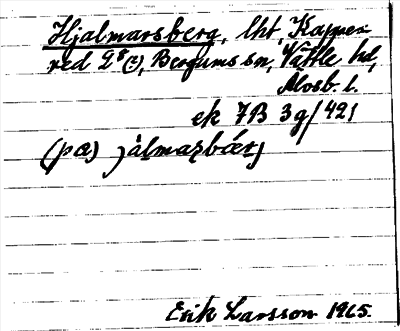 Hjalmarsberg, lht, Kapper-
red 2⁵(2), Bergums sn, Vättle hd,
Älvsb. l.
ek 7B 3g/421
(pa) jàlmaʂbǽrj
Erik Larsson 1965.